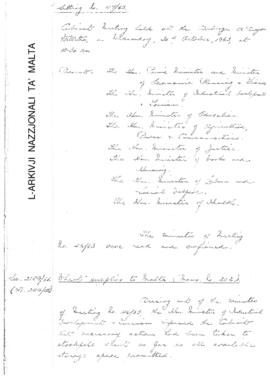 L-ARKIVJI NAZZJONALI TA' MALTA
Sitting No. 47/63
Cabinet Meeting held at the Auberge d'Aragon
Valletta, on Wednesday, 30th October, 1963, at
10.30 am
Present: The Hon. Prime Minister and Minister
of Economic Planning & Finance
The Hon. Minister of Industrial Development
& Tourism
The Hon. Minister of Education
The Hon. Minister of Agriculture,
Power & Communications
The Hon. Minister of Justice
The Hon. Minister of Works and
Housing
The Hon. Minister of Labour and
Social Welfare
The Hon. Minister of Health.
The minutes of Meeting
No 46/63 were read and confirmed.
supplies to Malta (Memo. No
Arising out of the minutes
of Meeting No 46/63, the Hon. Minister of Industrial
Development & Tourism informed the Cabinet
that necessary action had been taken to
stockpile as far as the available
storage space permitted.